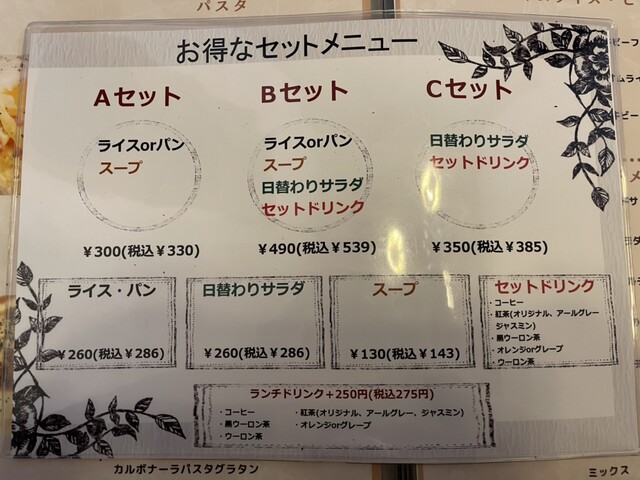 パスタ
お得なセットメニュー
Aセット
ライスorパン
スープ
¥300(税込¥330)
Bセット
ライスorパン
スープ
日替わりサラダ
セットドリンク
¥490(税込¥539)
Cセット
日替わりサラダ
セットドリンク
¥350(税込¥385)
ライス・パン
¥260(税込¥286)
日替わりサラダ
¥260(税込¥286)
スープ
¥130(税込¥143)
セットドリンク
・コーヒー
・紅茶(オリジナル、アールグレー
ジャスミン)
・黒ウーロン茶
・オレンジorグレープ
・ウーロン茶
ランチドリンク+250円(税込275円)
・コーヒー
・黒ウーロン茶
・ウーロン茶
・紅茶(オリジナル、アールグレー、ジャスミン)
・オレンジorグレープ
カルボナーラパスタグラタン
ミックス